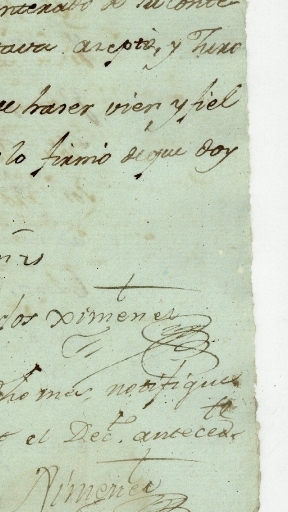 enterado de su conte-
tava asepto, y Juro
haser vien y fiel
lo firmó de que doy
dos Ximenes
notifique
el Dec.to anteced.te
Ximenes